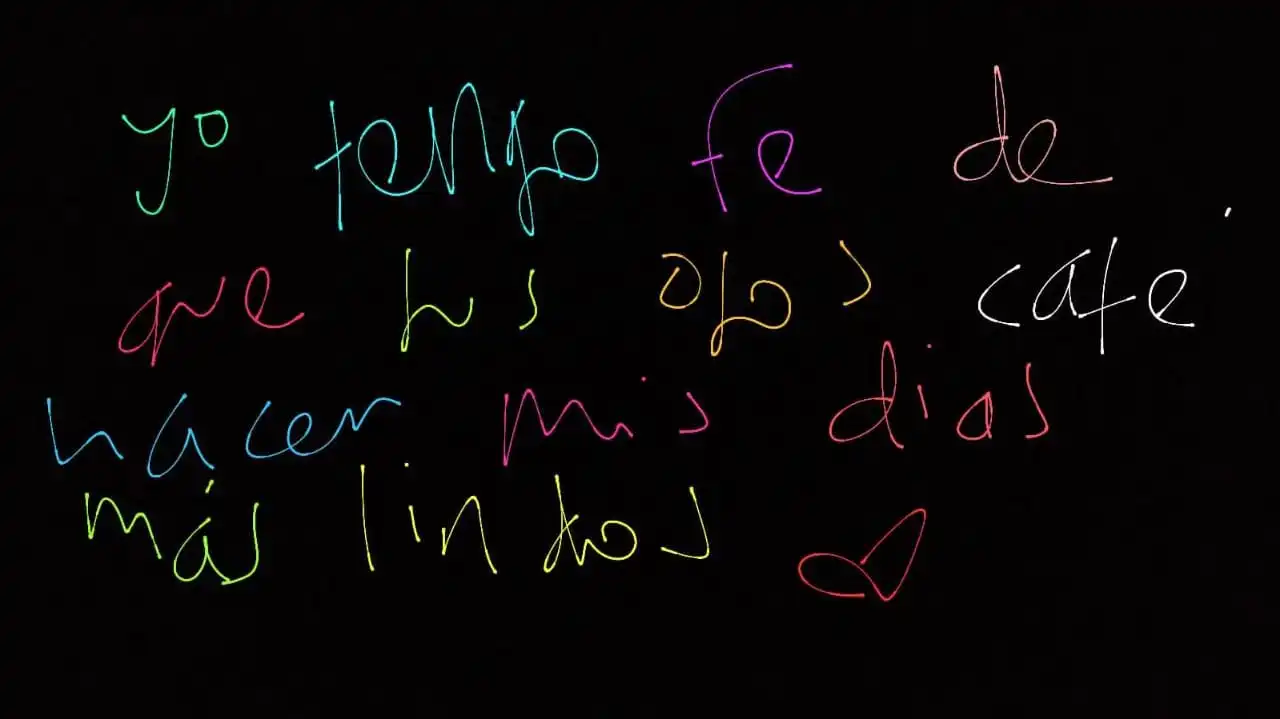 yo tengo fe de
que tus ojos café
hacen mis dias
más lindos